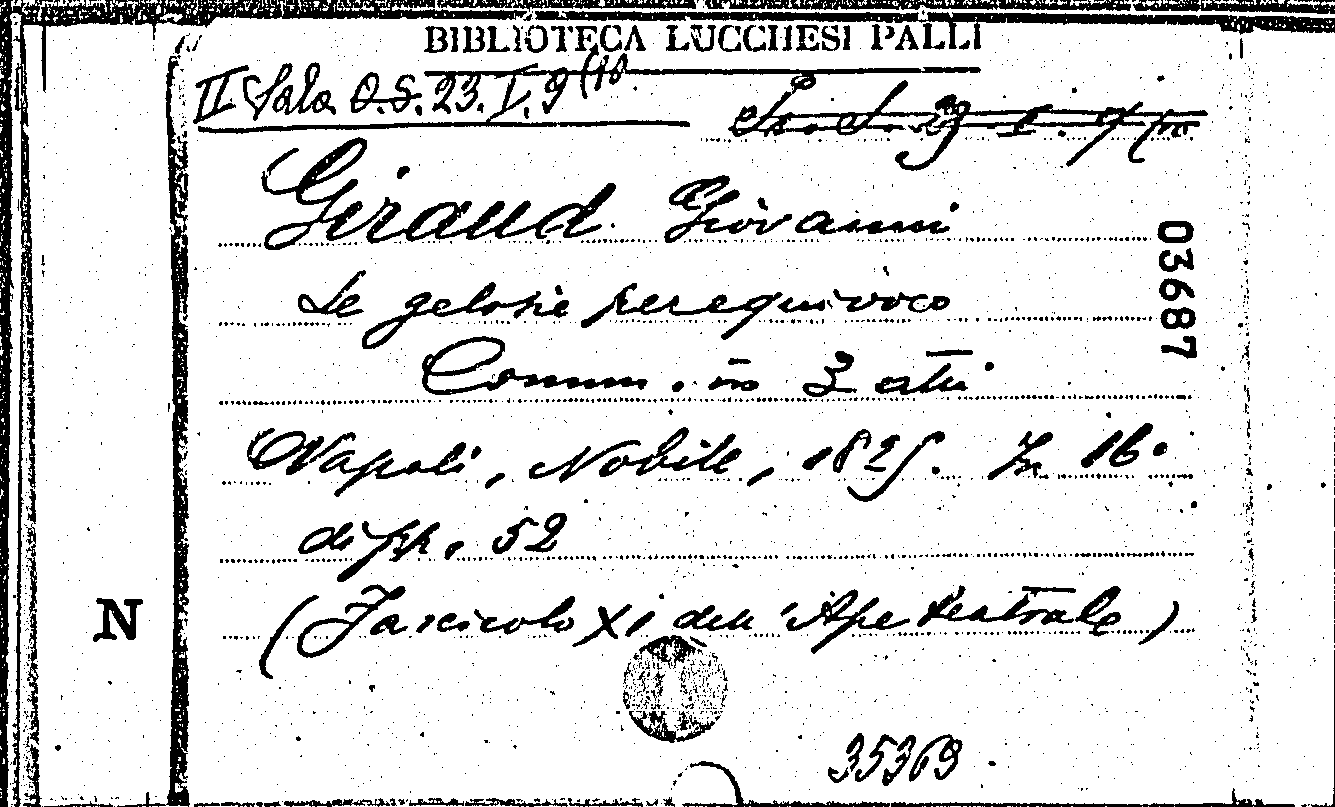 BIBLIOTECA LUCCHESI PALLI
II Sala O.S. 23. I. 9 (10
Giraud Giovanni
Le gelosie per equivoco
Comm. in 3 atti
Napoli, Nobile, 1825. In 16°
di pp. 52
(Fascicolo XI dell'Ape teatrale)
35369.
03687
N